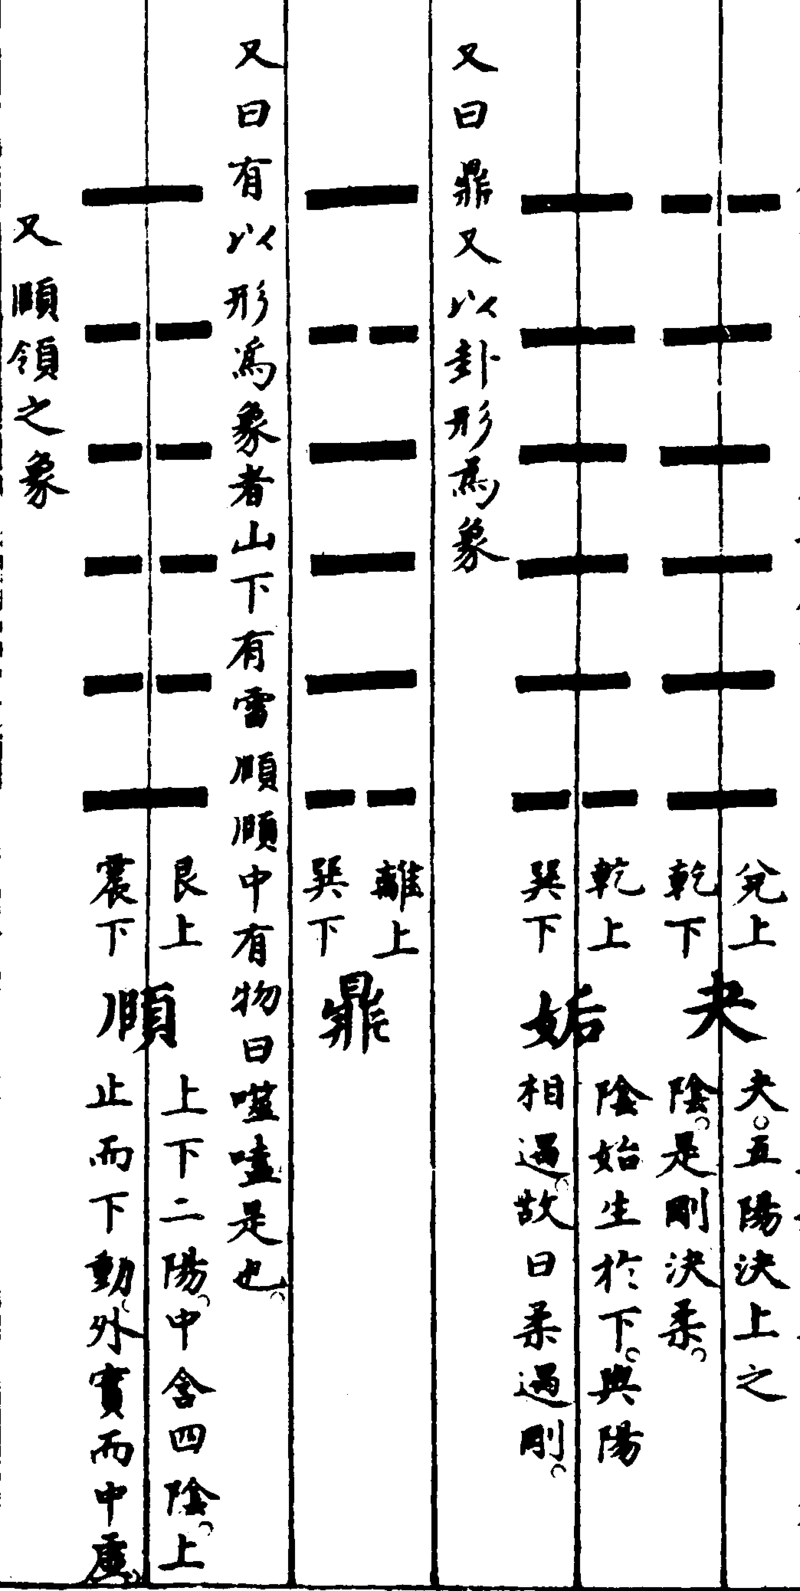 兌上
乾下
夬
夬。五陽決上之
陰。是剛決柔。
乾上
巽下
姤
陰始生於下。與陽
相遇。故曰柔遇剛。
又曰鼎又以卦形為象
離上
巽下
鼎
又曰有以形爲象者山下有雷頤頤中有物曰噬嗑是也。
艮上
震下
頤
上下二陽。中含四陰。上
止而下動。外實而中虛。
又頤領之象